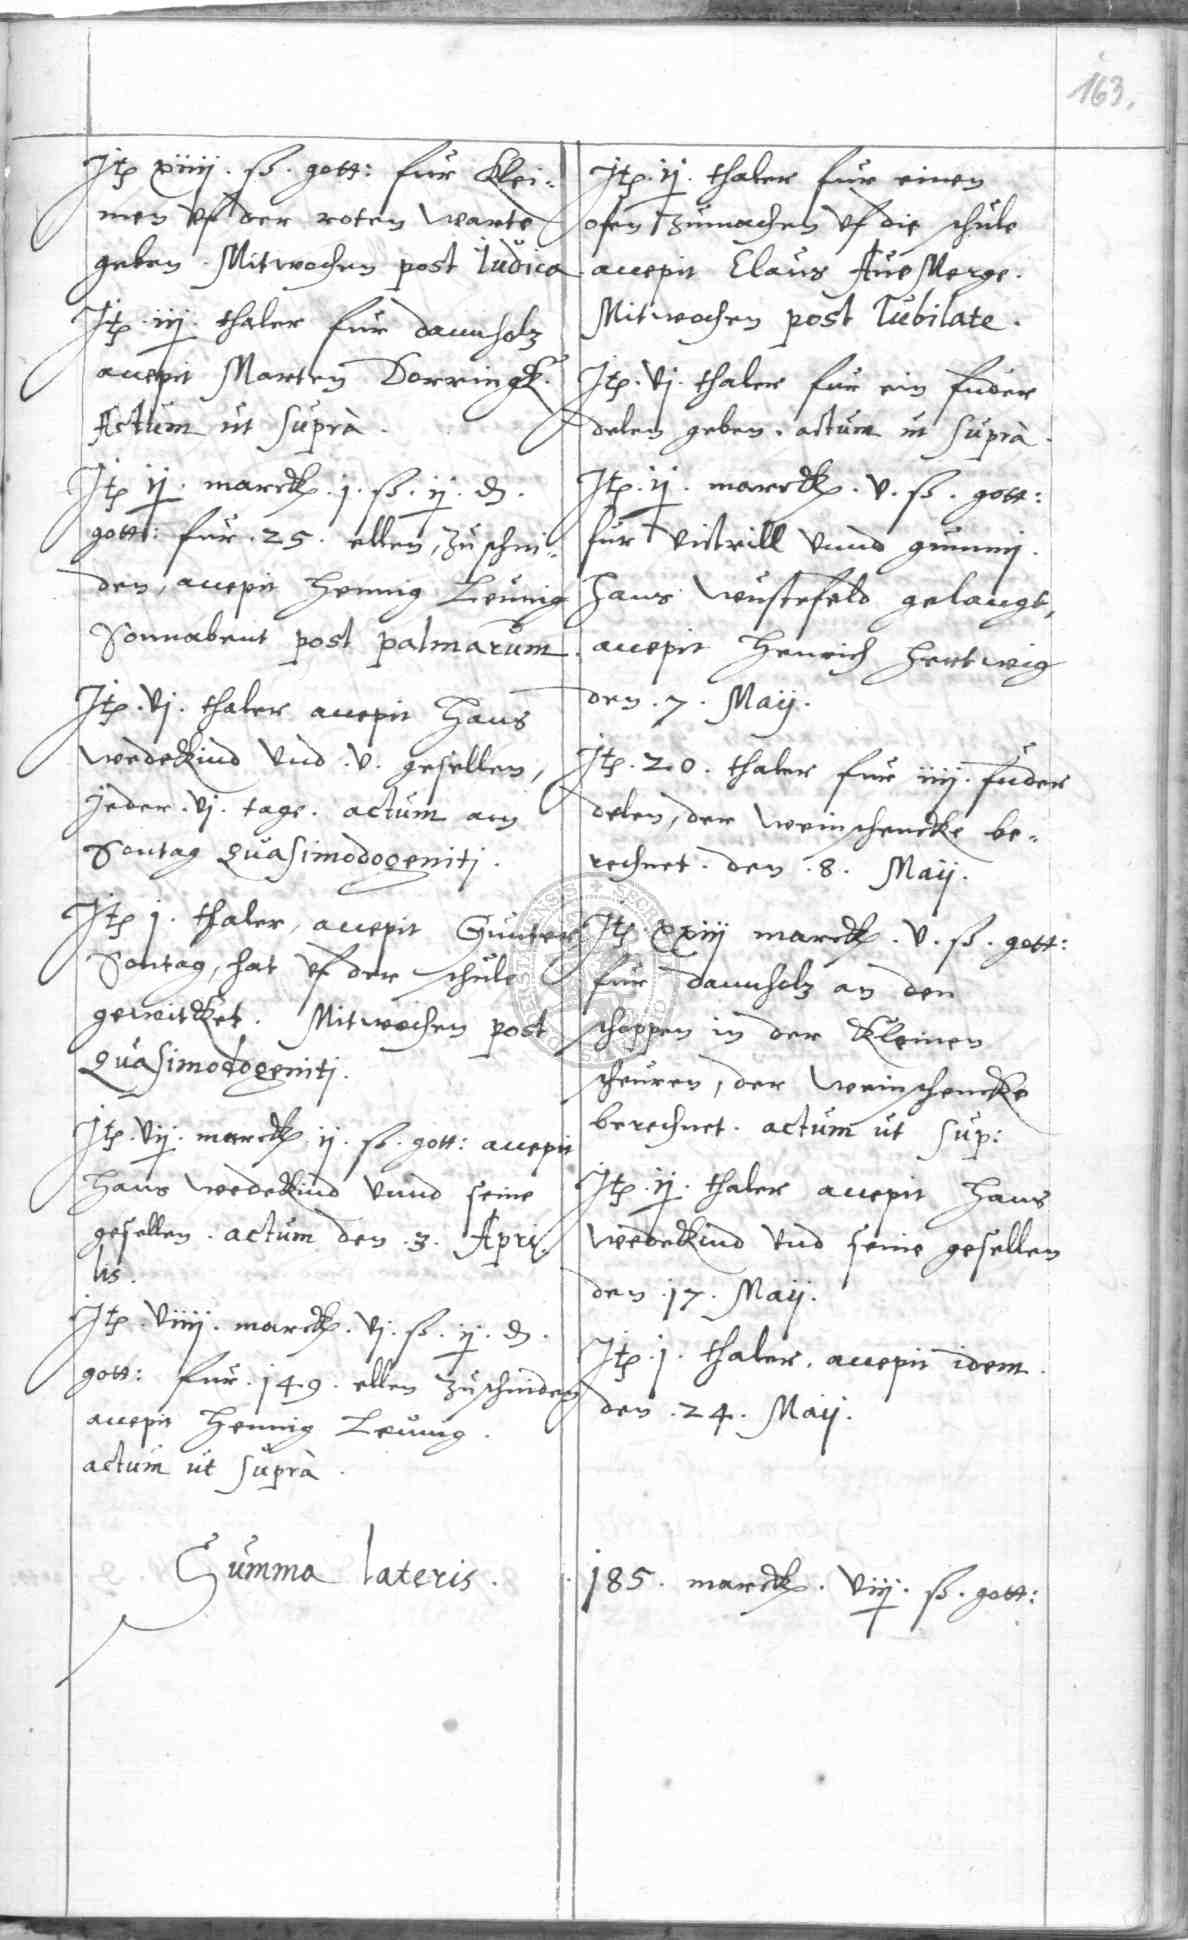 163.
Itꝭ xiiij. ß. gott: fur klei-
men vf der roten warte
geben. Mitwochen post Iudica
Itꝭ iij. thaler fur dannholz
accepit Marten Dorringk.
Actum ut suprà.
Itꝭ ij. marckꝭ. j. ß. ij. ₰.
gott: fur .25. ellen, zu schni-
den, accepit Hennig Leunig
Sonnabent post palmarum.
Itꝭ. vj. thaler accepit Hans
Wedekind vnd .v. gesellen,
jeder .vj. tage. actum am
Sontag Quasimodogenitj.
Itꝭ j. thaler, accepit Gunter
Sontag, hat vf der schule
gewircket. Mitwochen post
Quasimodogenitj.
Itꝭ. vij. marckꝭ ij. ß. gott: accepit
Hans Wedekind vnnd seine
gesellen. actum den .3. Apri-
lis.
Itꝭ. viiij. marckꝭ. vj. ß. ij. ₰.
gott: fur .149. ellen zuschniden
accepit Hennig Leunig.
actum ut suprà.
Itꝭ. ij. thaler fur einen
ofen zumachen vf die schule
accepit Claus
Mitwochen post Iubilate.
Itꝭ. vj. thaler fur ein fuder
delen geben. actum ut suprà.
Itꝭ. ij. marckꝭ. v. ß. gott:
fur victrill vnnd gummj.
Hans Wustefeld gelangt,
accepit Henrich Hertwig
den .7. Maij.
Itꝭ. 20. thaler fur iiij. fuder
delen, der Weinschencke be-
rechnet. den .8. Maij.
Itꝭ. xxiij marckꝭ. v. ß. gott:
fur dannholz an den
schoppen in der kleinen
scheuren, der Weinschencke
berechnet. actum ut sup:
Itꝭ. ij. thaler accepit Hans
Wedekind vnd seine gesellen
den .17. Maij.
Itꝭ. j. thaler. accepit idem.
den .24. Maij.
Summa lateris. 185. marckꝭ. viij. ß. gott: